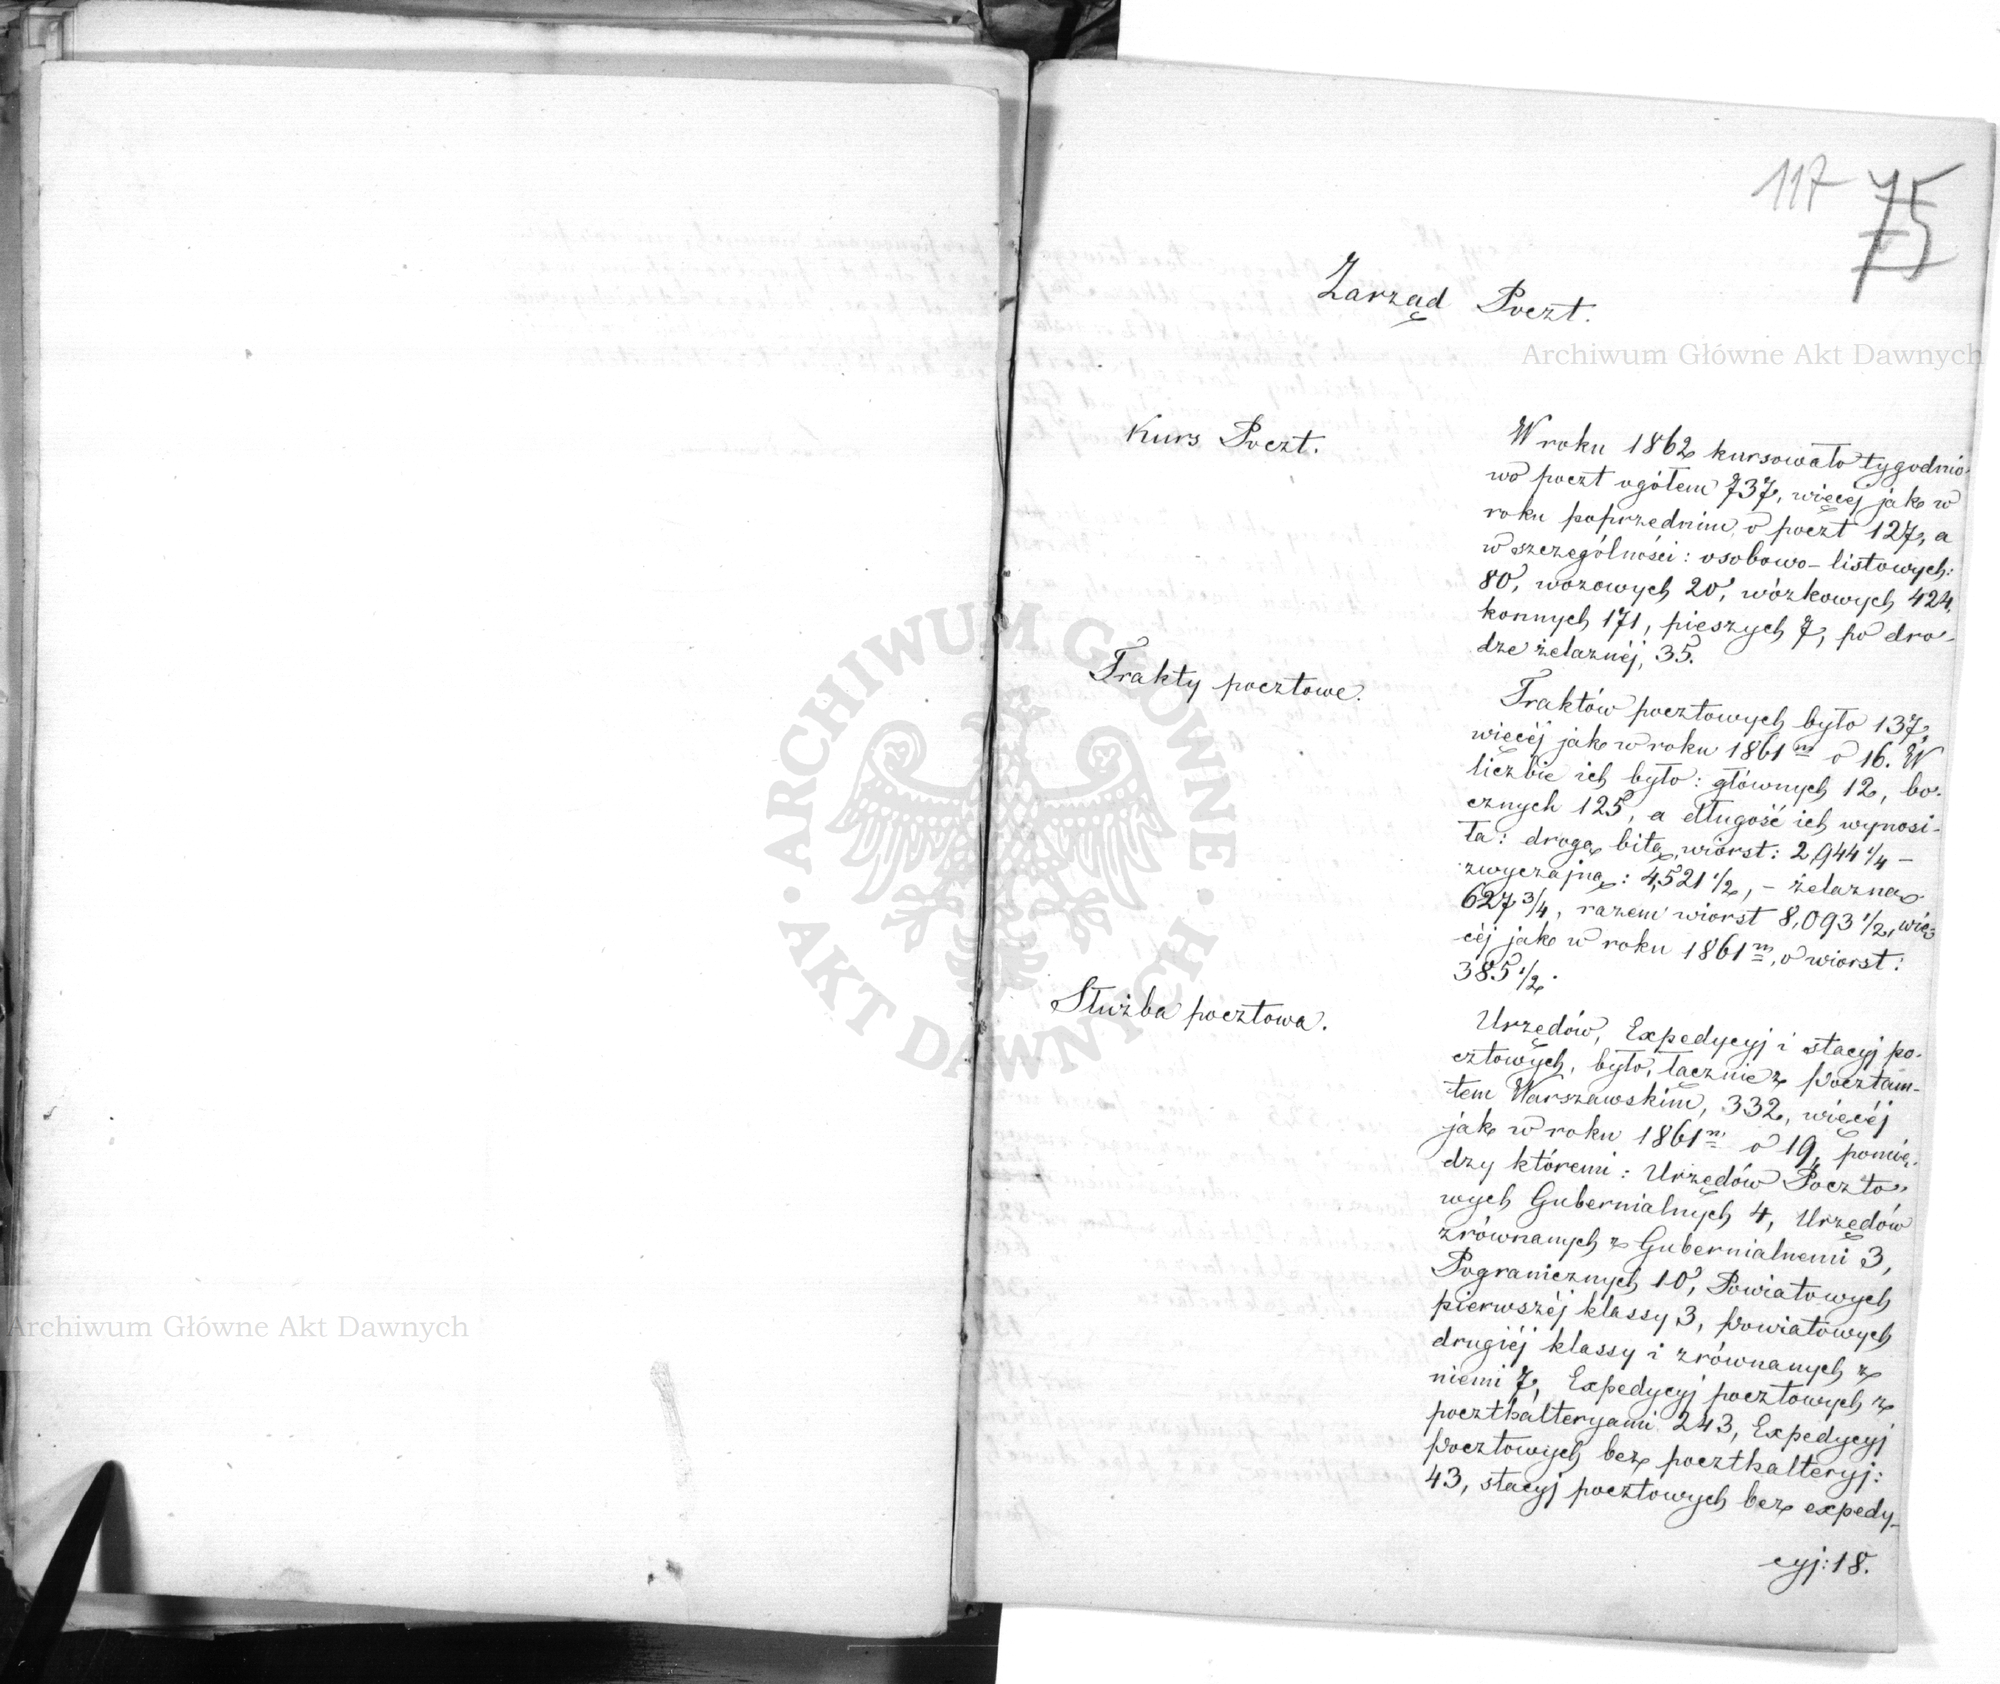 117 75
Zarząd Poczt.
Archiwum Główne Akt Dawnych
Kurs Poczt.
W roku 1862 kursowało tygodnio-
wo poczt ogółem 737, więcej jak w
roku poprzednim, o poczt 127, a
w szczególności: osobowo-listowych:
80, wozowych 20, wózkowych 424,
konnych 171, pieszych 7, po dro-
dze żelaznéj, 35.
Trakty pocztowe.
Traktów pocztowych było 137,
więcéj jak w roku 1861 m o 16. W
liczbie ich było: głównych 12, bo-
cznych 125, a długość ich wynosi-
ła: drogą bitą, wiorst: 2,944 1/4 –
zwyczajną: 4,521 1/2, – żelazną
627 3/4, razem wiorst 8,093 1/2, wię-
céj jak w roku 1861 m, o wiorst:
385 1/2.
Służba pocztowa.
Urzędów, Expedycyj i stacyj po-
cztowych, było, łącznie z Pocztam-
tem Warszawskim, 332, więcéj
jak w roku 1861 m o 19, pomię-
dzy któremi: Urzędów Poczto-
wych Gubernialnych 4, Urzędów
zrównanych z Gubernialnemi 3,
Pogranicznych 10, Powiatowych
pierwszéj klassy 3, Powiatowych
drugiéj klassy i zrównanych z
niemi 7, Expedycyj pocztowych z
poczthalteryami 243, Expedycyj
Pocztowych bez poczthalteryj:
43, stacyj pocztowych bez expedy-
cyj: 18.
ARCHIWUM GŁÓWNE · AKT DAWNYCH ·
Archiwum Główne Akt Dawnych